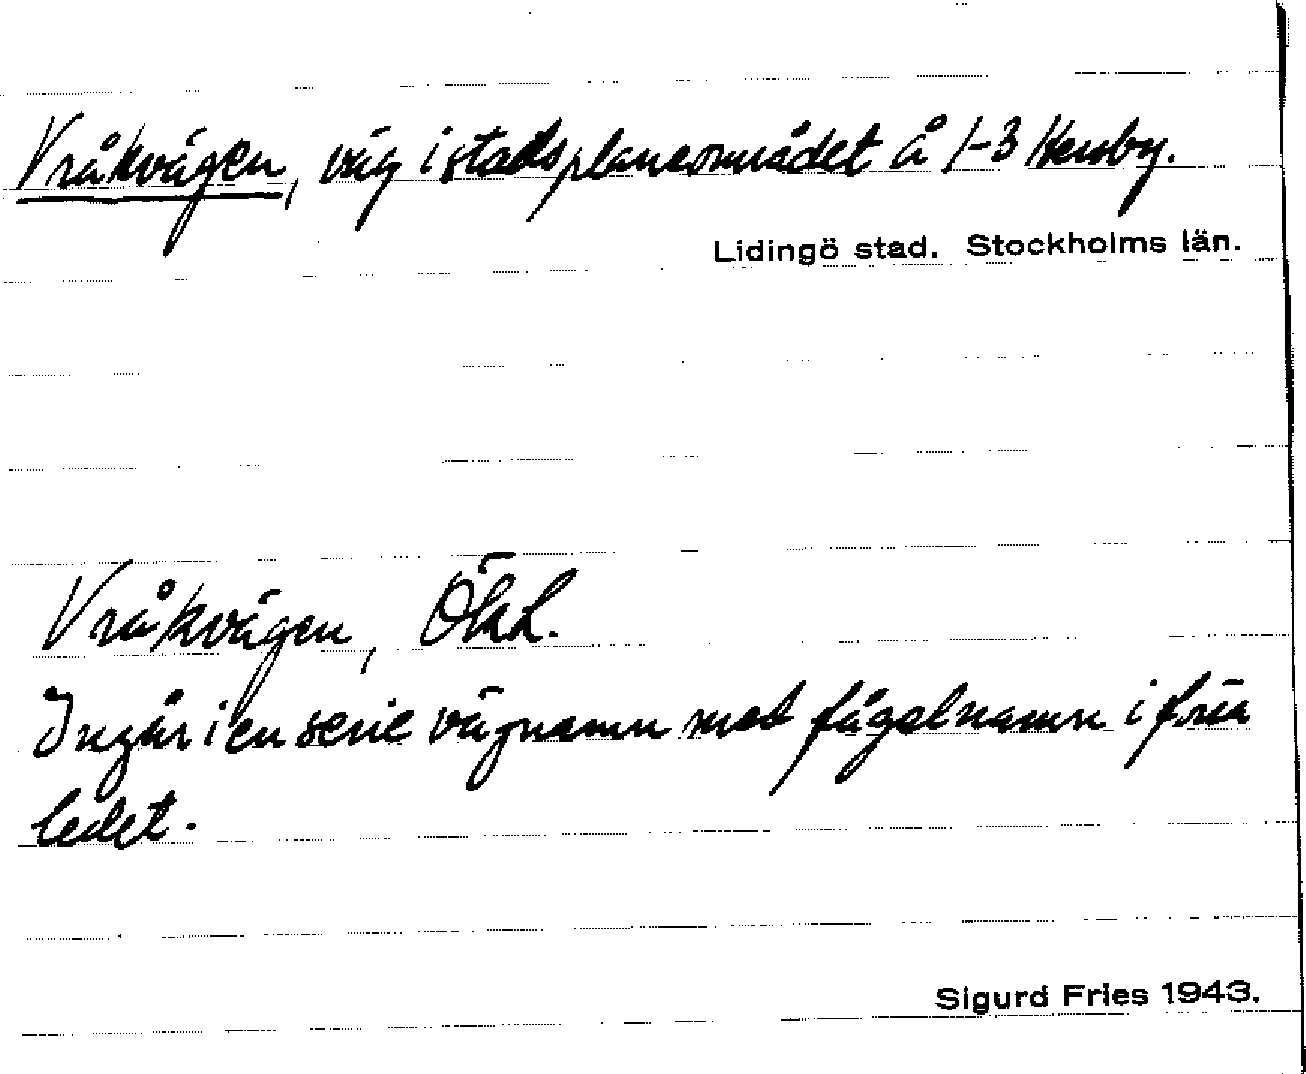 Vråkvägen, väg i stadsplaneområdet å 1-3 Hersby.
Lidingö stad. Stockholms län.
Vråkvägen, ÖkL.
Ingår i en serie vägnamn med fågelnamn i förra
ledet.
Sigurd Fries 1943.